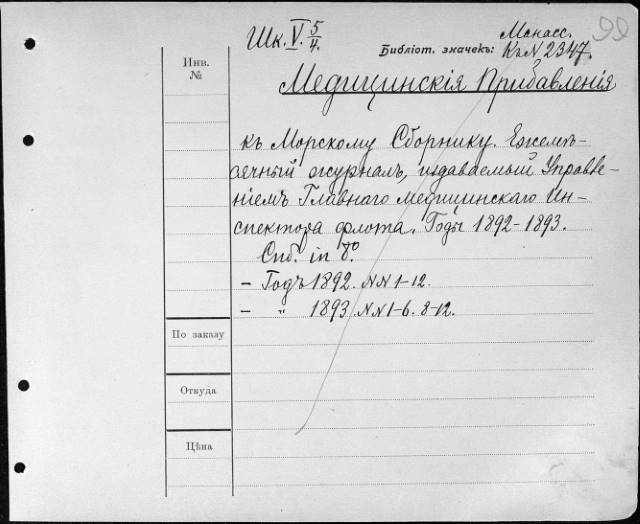 Шк. V. 5/4.
Монасс.
99
Библіот. значекъ: К. N 2347.
Инв. №
Медицинскія Прибавленія
къ Морскому Сборнику. Ежемѣ-
сячный журналъ, издаваемый Управле-
ніемъ Главнаго медицинскаго Ин-
спектора флота. Годы 1892-1893.
Спб. in 8º.
- Годъ 1892. NN 1-12.
- " 1893. NN 1-6. 8-12.
По заказу
Откуда
Цѣна